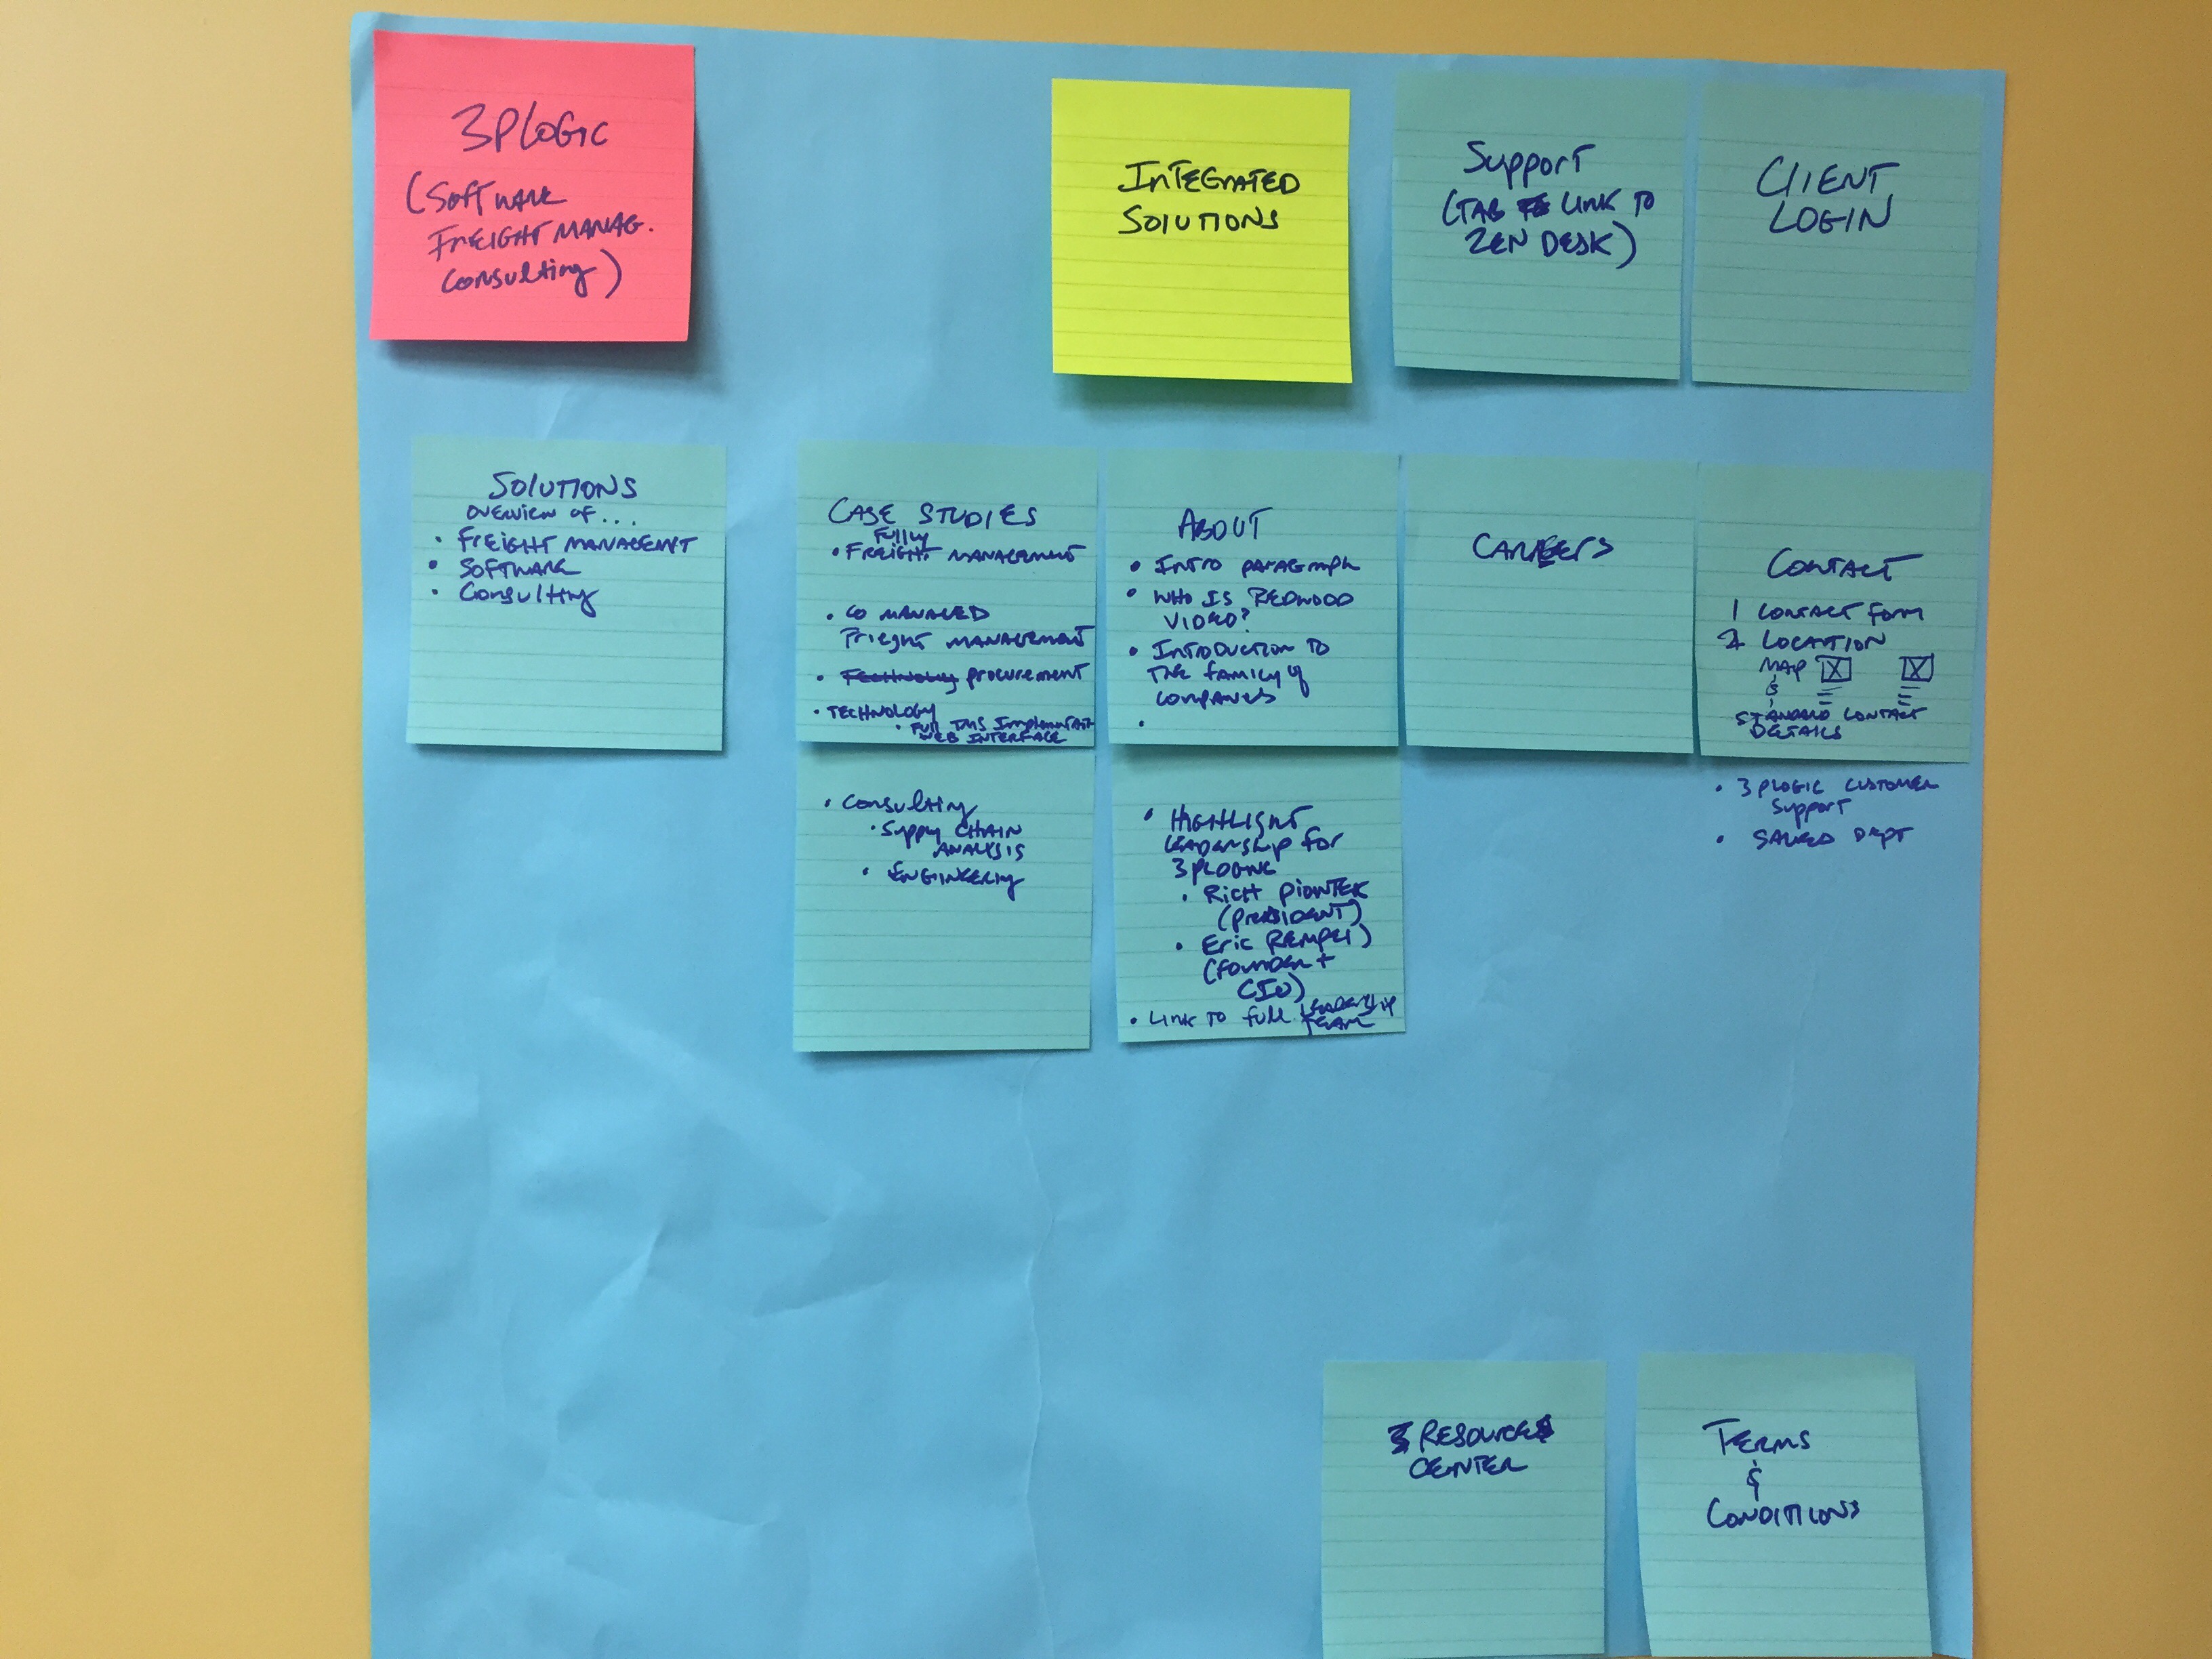 3PLOGIC
(SOFTWARE
FREIGHT MANAG.
Consulting)
INTEGRATED
SOLUTIONS
Support
(TAB LINK TO
ZEN DESK)
CLIENT
LOGIN
SOLUTIONS
OVERVIEW OF...
• FREIGHT MANAGEMENT
• SOFTWARE
• Consulting
CASE STUDIES
Fully
• FREIGHT MANAGEMENT
• CO MANAGED
Frieght MANAGEMENT
• Technology procurement
• TECHNOLOGY
• Full TMS Implementati
WEB INTERFACE
• Consulting
• Supply CHAIN
ANALYSIS
• ENGINEERING
ABOUT
• Intro paragraph
• WHO IS REDWOOD
VIDEO?
• INTRODUCTION TO
THE family of
COMPANIES
•
• HIGHLIGHT
leadership for
3PLOGIC
• RICH PIONTEK
(PRESIDENT)
• Eric REMPEL
(Founder +
CIO)
• LINK TO full LEADERSHIP
TEAM
CAREERS
CONTACT
1 CONTACT Form
2 LOCATION
MAP
&
STANDARD CONTACT
DETAILS
• 3PLOGIC CUSTOMER
Support
• SALES DEPT
RESOURCE
CENTER
TERMS
&
CONDITIONS